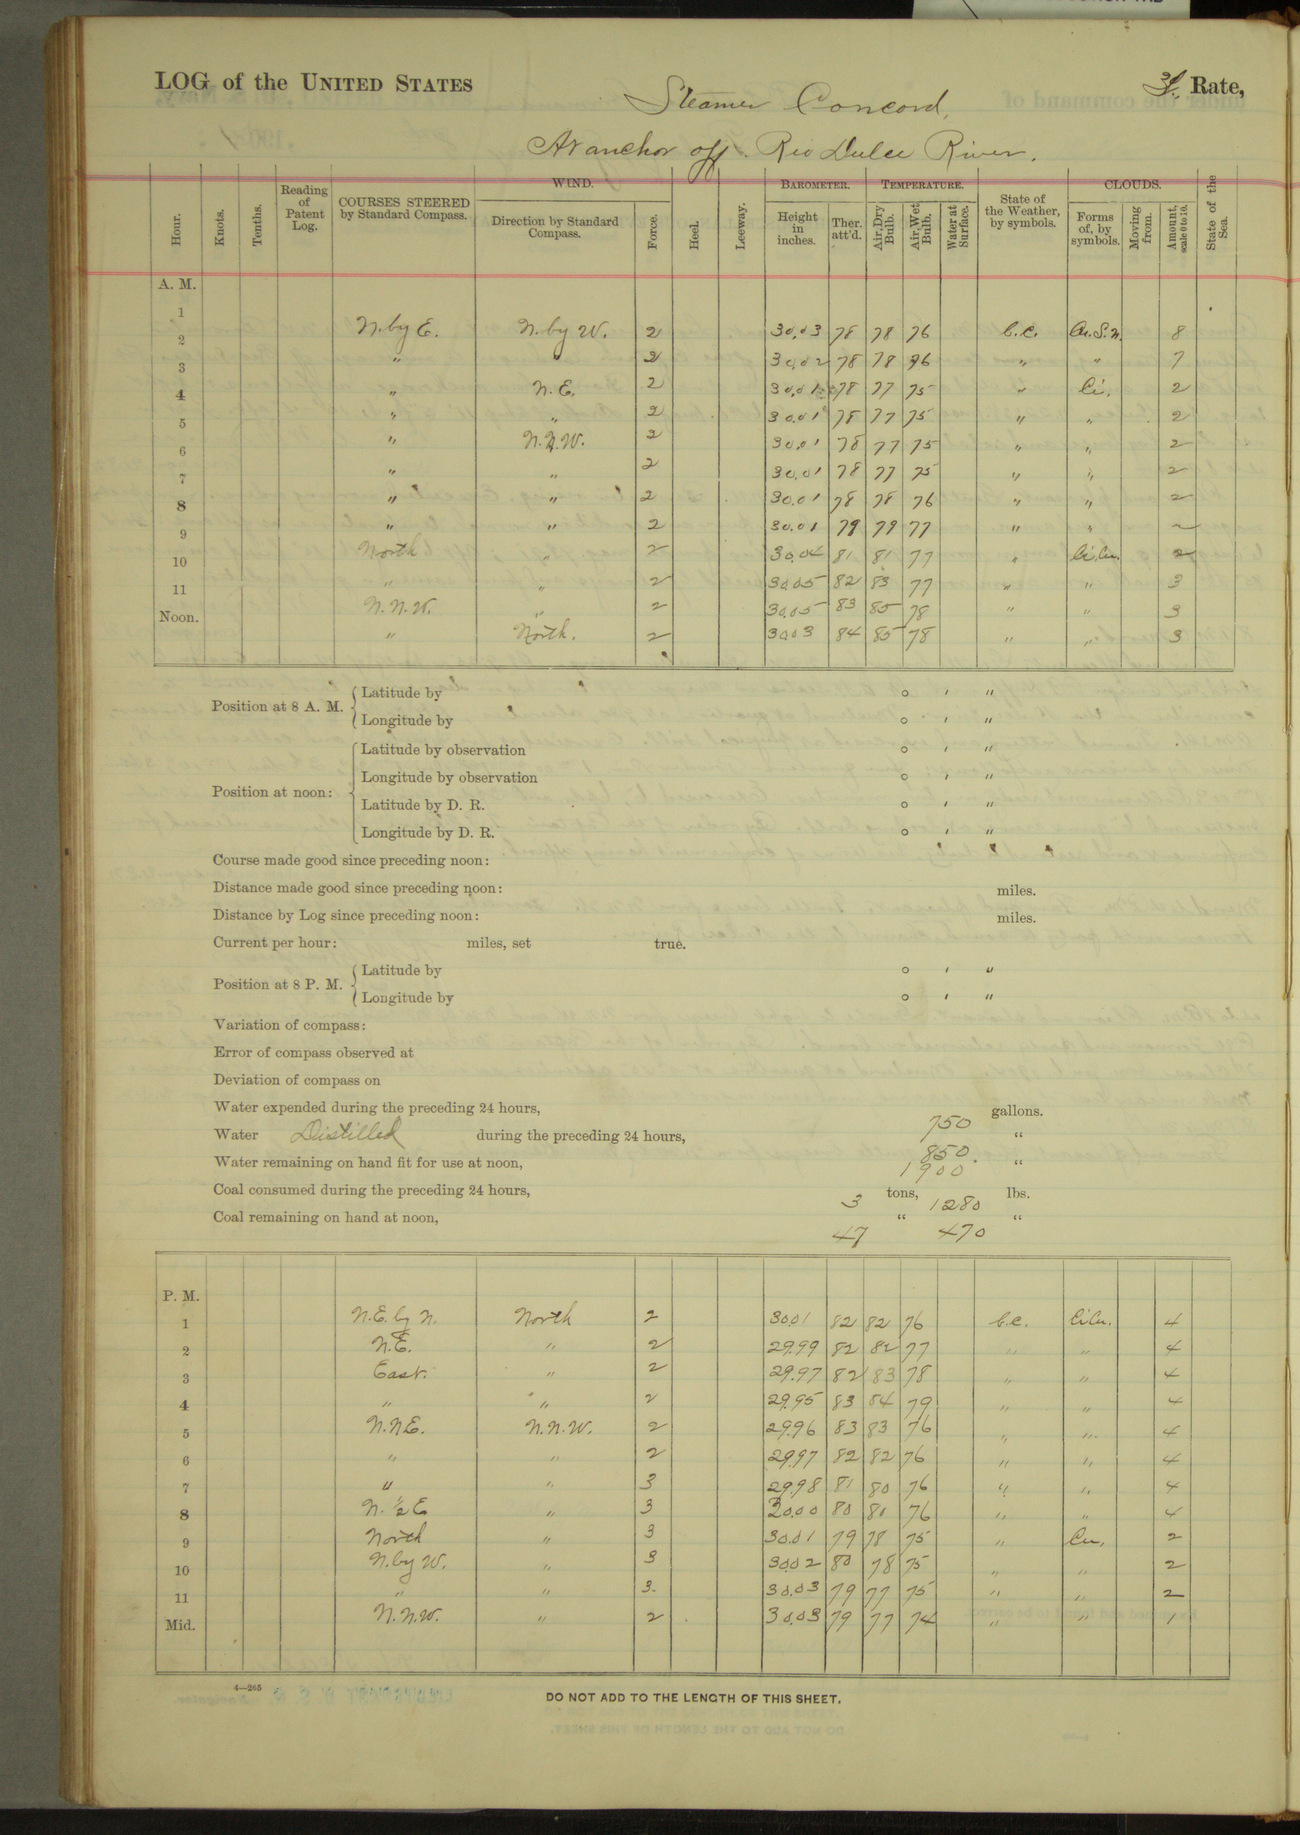 LOG of the UNITED STATES 3d. Rate,
Steamer Concord,
At anchor off. Rio Dulce River.
Hour. Knots. Tenths. Reading of Patent Log. COURSES STEERED by Standard Compass. WIND. Direction by Standard Compass. Force. Heel. Leeway. BAROMETER. Height in inches. Ther. att'd. TEMPERATURE. Air, Dry Bulb. Air, Wet Bulb. Water at Surface. State of the Weather, by symbols. CLOUDS. Forms of, by symbols. Moving from. Amount, scale 0 to 10. State of the Sea.
A. M.
1 N. by E. N. by W. 2 30.03 78 78 76 b.c. Cu.S.N. 8
2 " " 2 30.02 78 78 76 " " 7
3 " N. E. 2 30.01 78 77 75 " Ci. 2
4 " " 2 30.01 78 77 75 " " 2
5 " N.N.W. 2 30.01 78 77 75 " " 2
6 " " 2 30.01 78 77 75 " " 2
7 " " 2 30.01 78 78 76 " " 2
8 " " 2 30.01 79 79 77 " " 2
9 North " 2 30.04 81 81 77 " Ci.Cu. 2
10 " " 2 30.05 82 83 77 " " 3
11 N.N.W. " 2 30.05 83 85 78 " " 3
Noon. " North. 2 30.03 84 85 78 " " 3
Position at 8 A. M. Latitude by ° ′ ″
Longitude by ° ′ ″
Position at noon: Latitude by observation ° ′ ″
Longitude by observation ° ′ ″
Latitude by D. R. ° ′ ″
Longitude by D. R. ° ′ ″
Course made good since preceding noon:
Distance made good since preceding noon: miles.
Distance by Log since preceding noon: miles.
Current per hour: miles, set true.
Position at 8 P. M. Latitude by ° ′ ″
Longitude by ° ′ ″
Variation of compass:
Error of compass observed at
Deviation of compass on
Water expended during the preceding 24 hours, 750 gallons.
Water Distilled during the preceding 24 hours, 850. "
Water remaining on hand fit for use at noon, 1900 "
Coal consumed during the preceding 24 hours, 3 tons, 1280 lbs.
Coal remaining on hand at noon, 47 " 470 "
P. M.
1 N.E. by N. North 2 30.01 82 82 76 b.c. Ci.Cu. 4
2 N.E. " 2 29.99 82 82 77 " " 4
3 East. " 2 29.97 82 83 78 " " 4
4 " " 2 29.95 83 84 79 " " 4
5 N.N.E. N.N.W. 2 29.96 83 83 76 " " 4
6 " " 2 29.97 82 82 76 " " 4
7 " " 3 29.98 81 80 76 " " 4
8 N. ½ E " 3 30.00 80 80 76 " " 4
9 North " 3 30.01 79 78 75 " Cu. 2
10 N. by W. " 3 30.02 80 78 75 " " 2
11 " " 3. 30.03 79 77 75 " " 2
Mid. N.N.W. " 2 30.03 79 77 74 " " 1
4—265
DO NOT ADD TO THE LENGTH OF THIS SHEET.